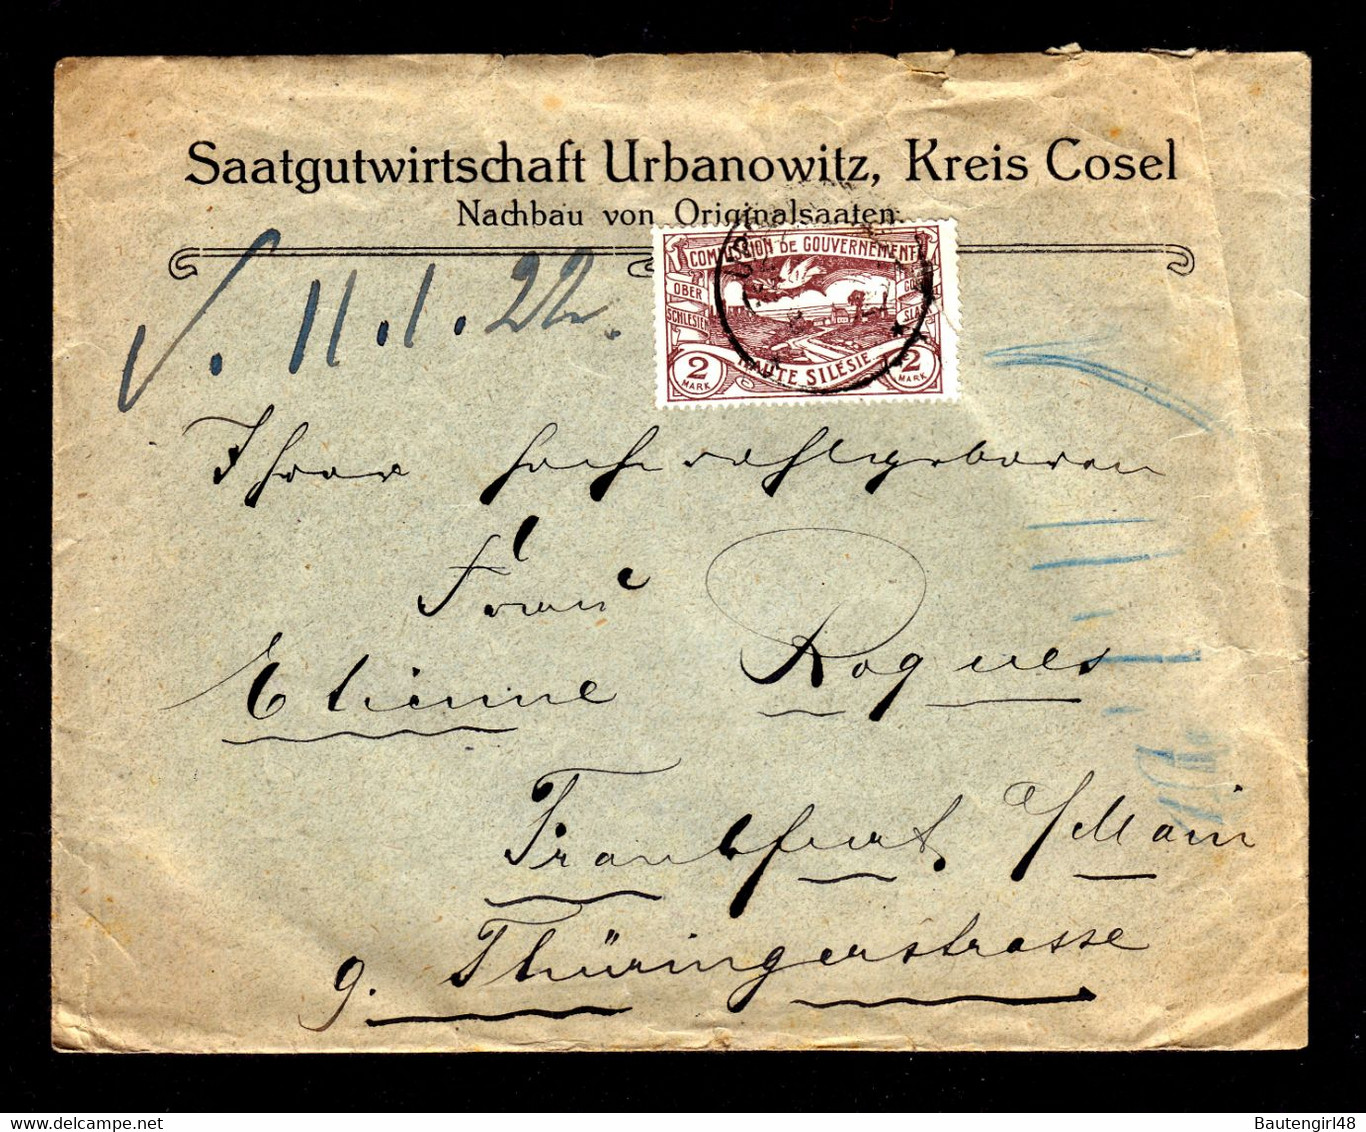 Saatgutwirtschaft Urbanowitz, Kreis Cosel
Nachbau von Originalsaaten.
COMMISSION DE GOUVERNEMENT
OBER
SCHLESIEN
HAUTE SILÉSIE
2 MARK
2 MARK
11.1.22.
Ihrer hochwohlgeboren
Frau
Etienne Roques
Frankfurt a/Main
9. Thüringerstrasse
www.delcampe.net
Bautengirl48